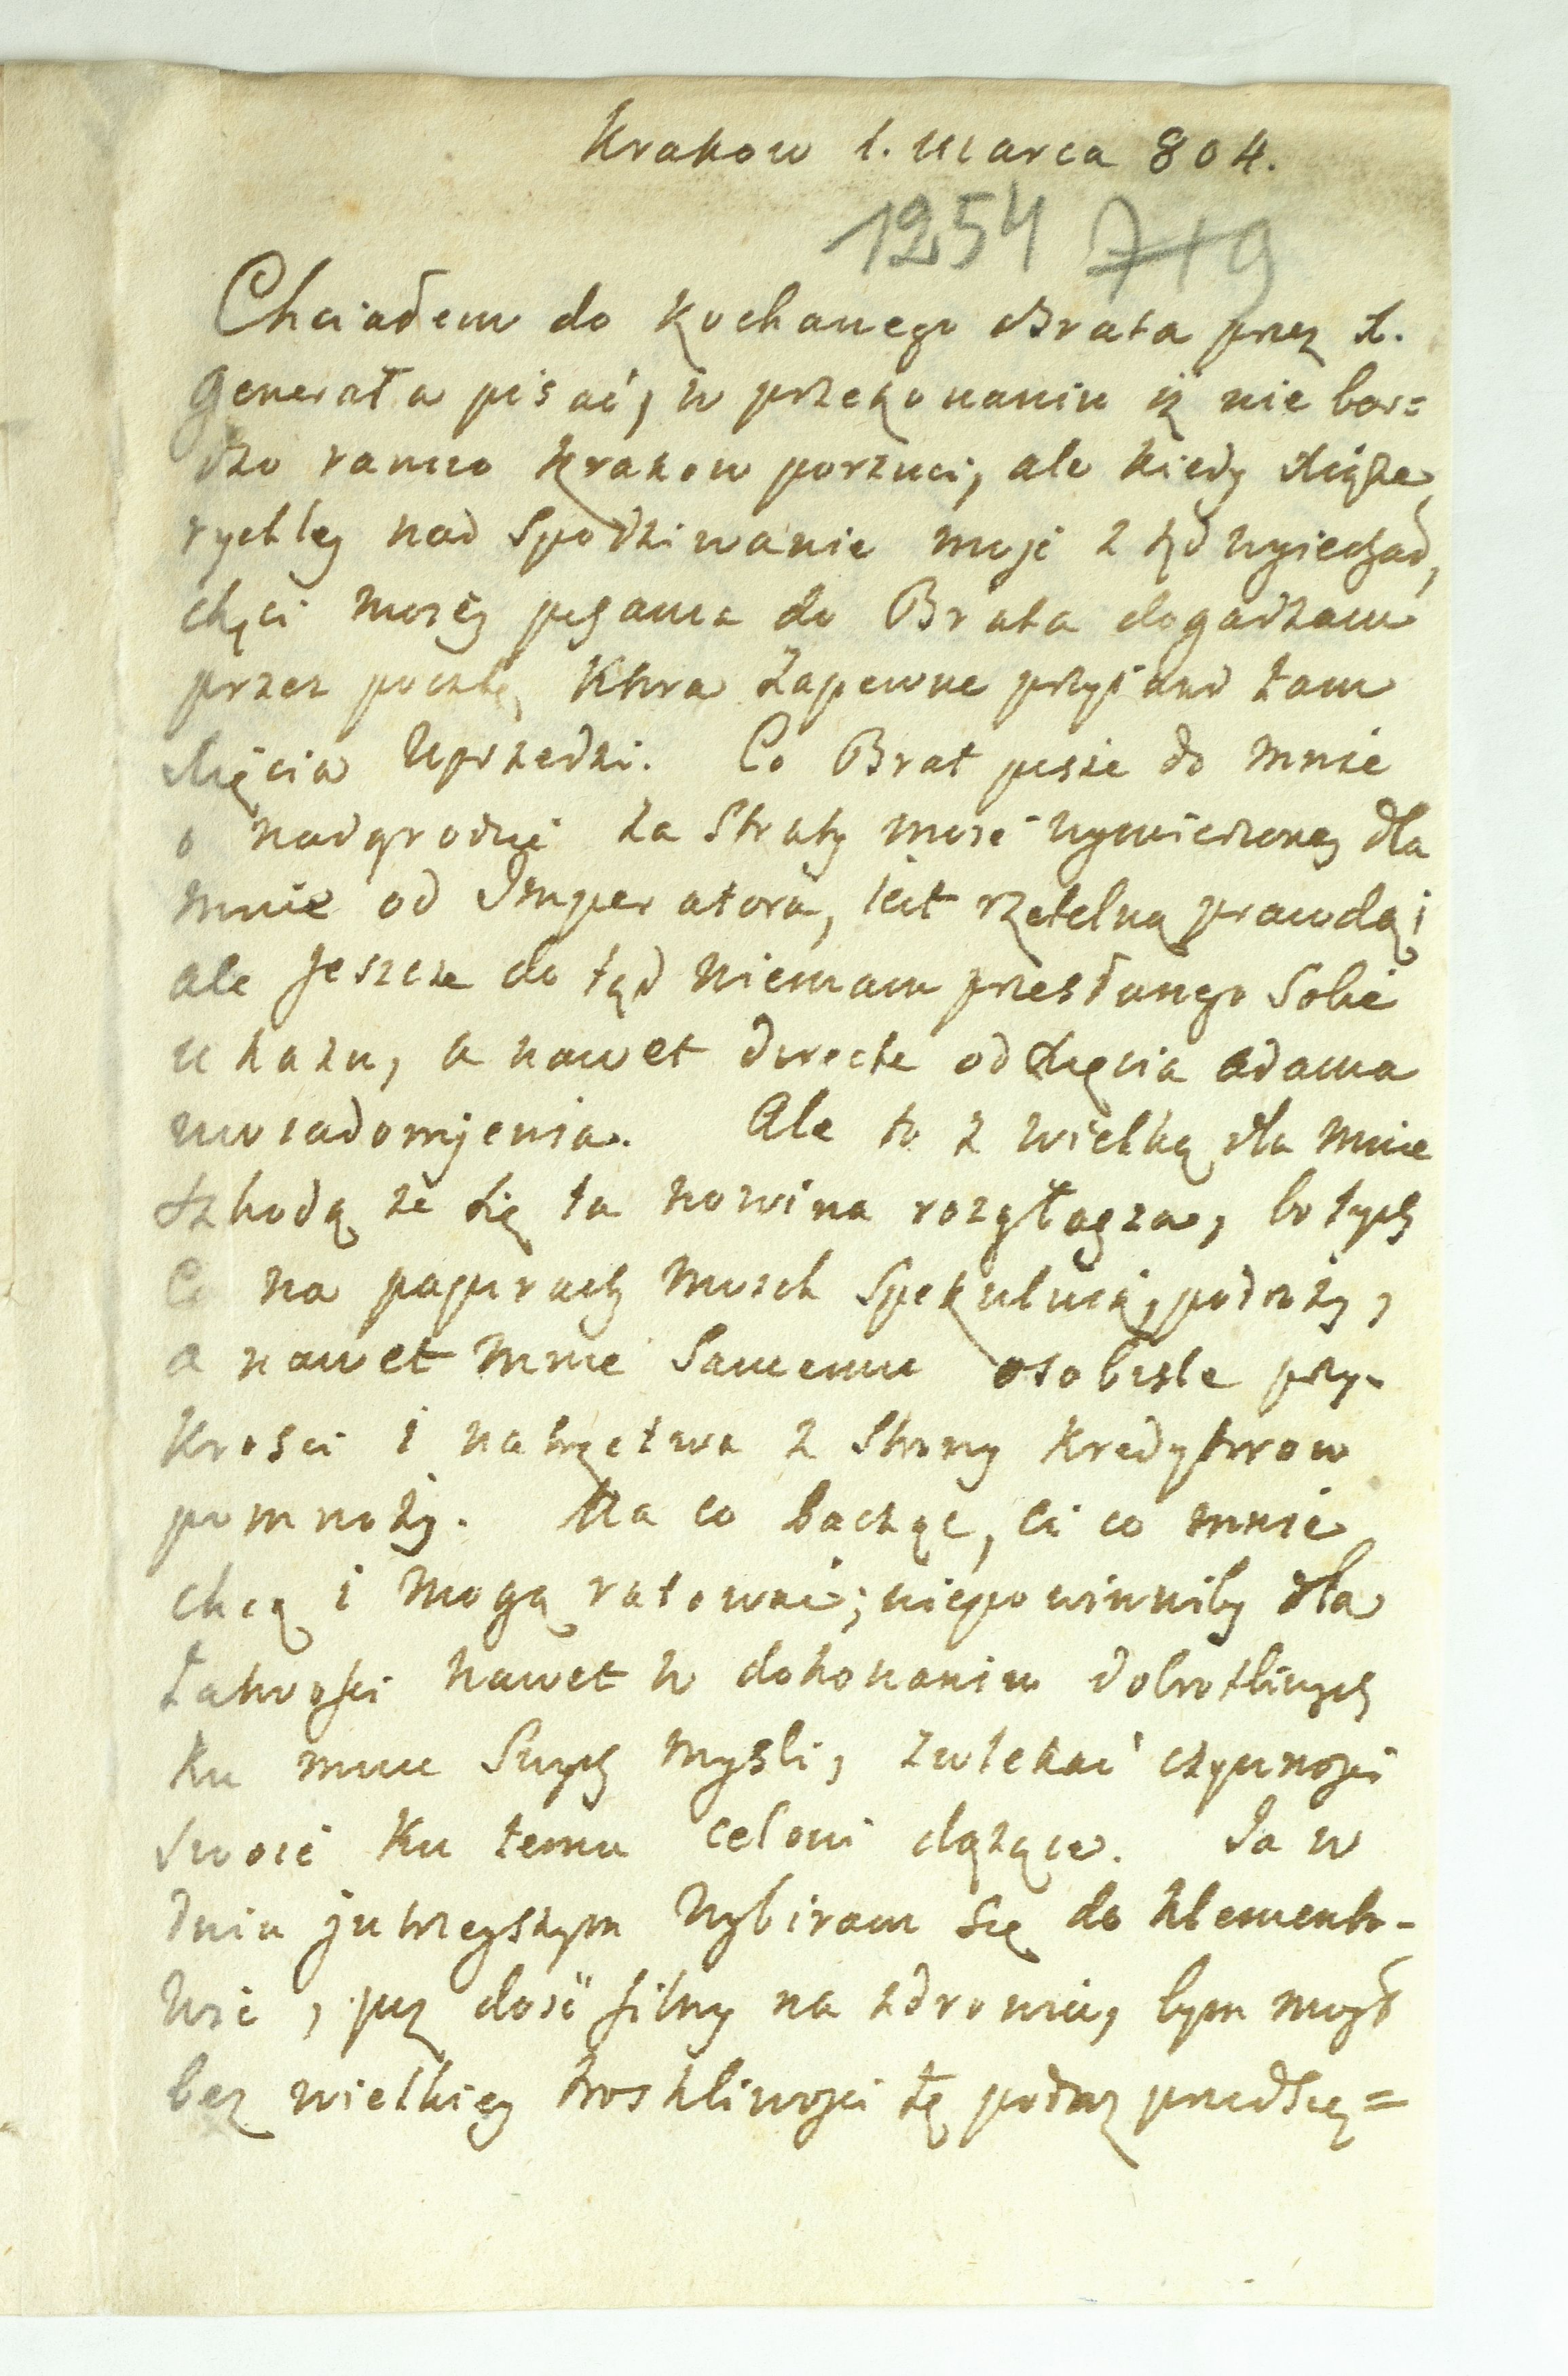 Krakow 1. Marca 804.
1254 719
Chciałem do Kochanego Brata przez X.
Generała pisać, w przekonaniu iż nie bar=
dzo ranno Krakow porzuci, ale kiedy Xiąże
rychley nad Spodziwanie moje z tąd wyiechał,
chęci moiey pisania do Brata dogadzam
przez pocztę, Ktora Zapewne przyiazd tam
Xięcia Uprzedzi. Co Brat pisze do mnie
o nadgrodzie za Straty moie wymierzoney dla
mnie od Imperatora, iest rzetelną prawdą;
ale Jeszcze do tąd niemam przesłanego Sobie
ukazu, a nawet directe od Xięcia Adama
uwiadomjenia. Ale to z wielką dla mnie
szkodą że się ta nowina rozgłasza, bo tych
Co na papirach moich Spekuluią, podroży,
a nawet mnie Samemu osobiste przy-
krosci i natręctwa z Strony Kredytorow
pomnoży. Na co bacząc, ci co mnie
chcą i mogą ratować; niepowinniby dla
Zatwości nawet w dokonaniu dobrotliwych
ku mnie Swych mysli, zwlekać czynnosci
Swoie ku temu celowi dążące. Ja w
dniu jutrzeyszym wybiram się do Klemento-
wic, już dosić silny na zdrowiu, bym mogł
bez wielkiey troskliwosci tę podroz przedsię=